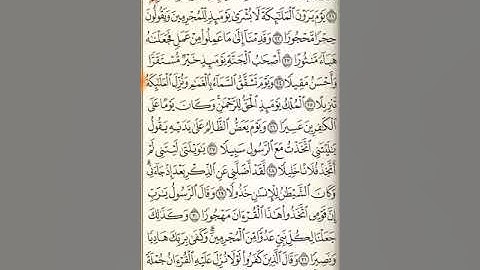 ٢١ يَوْمَ يَرَوْنَ الْمَلَٰٓئِكَةَ لَا بُشْرَىٰ يَوْمَئِذٍ لِّلْمُجْرِمِينَ وَيَقُولُونَ
حِجْرًا مَّحْجُورًا ٢٢ وَقَدِمْنَآ إِلَىٰ مَا عَمِلُوا۟ مِنْ عَمَلٍ فَجَعَلْنَٰهُ
هَبَآءً مَّنثُورًا ٢٣ أَصْحَٰبُ الْجَنَّةِ يَوْمَئِذٍ خَيْرٌ مُّسْتَقَرًّا
وَأَحْسَنُ مَقِيلًا ٢٤ وَيَوْمَ تَشَقَّقُ السَّمَآءُ بِالْغَمَٰمِ وَنُزِّلَ الْمَلَٰٓئِكَةُ
تَنزِيلًا ٢٥ الْمُلْكُ يَوْمَئِذٍ الْحَقُّ لِلرَّحْمَٰنِ وَكَانَ يَوْمًا عَلَى
الْكَٰفِرِينَ عَسِيرًا ٢٦ وَيَوْمَ يَعَضُّ الظَّالِمُ عَلَىٰ يَدَيْهِ يَقُولُ
يَٰلَيْتَنِى اتَّخَذْتُ مَعَ الرَّسُولِ سَبِيلًا ٢٧ يَٰوَيْلَتَىٰ لَيْتَنِى لَمْ
أَتَّخِذْ فُلَانًا خَلِيلًا ٢٨ لَّقَدْ أَضَلَّنِى عَنِ الذِّكْرِ بَعْدَ إِذْ جَآءَنِى
وَكَانَ الشَّيْطَٰنُ لِلْإِنسَٰنِ خَذُولًا ٢٩ وَقَالَ الرَّسُولُ يَٰرَبِّ
إِنَّ قَوْمِى اتَّخَذُوا۟ هَٰذَا الْقُرْءَانَ مَهْجُورًا ٣٠ وَكَذَٰلِكَ
جَعَلْنَا لِكُلِّ نَبِىٍّ عَدُوًّا مِّنَ الْمُجْرِمِينَ وَكَفَىٰ بِرَبِّكَ هَادِيًا
وَنَصِيرًا ٣١ وَقَالَ الَّذِينَ كَفَرُوا۟ لَوْلَا نُزِّلَ عَلَيْهِ الْقُرْءَانُ جُمْلَةً